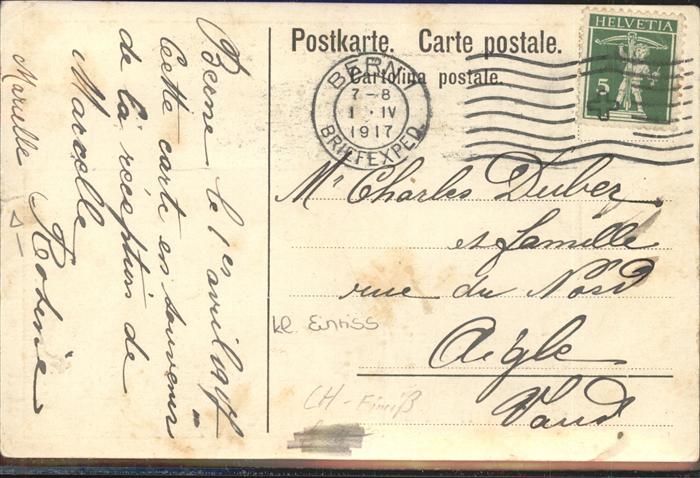 Postkarte. Carte postale.
Cartolina postale.
HELVETIA
5
BERN 1
7-8
1 • IV
1917
BRIEFEXPED.
Berne le 1er avril 1917
Cette carte en souvenir
de la réception de
Marcelle
Marcelle
Mr Charles Dubez
et famille
rue du Nord
Aigle
Vaud.
kl. Einriss
CH - Einriß